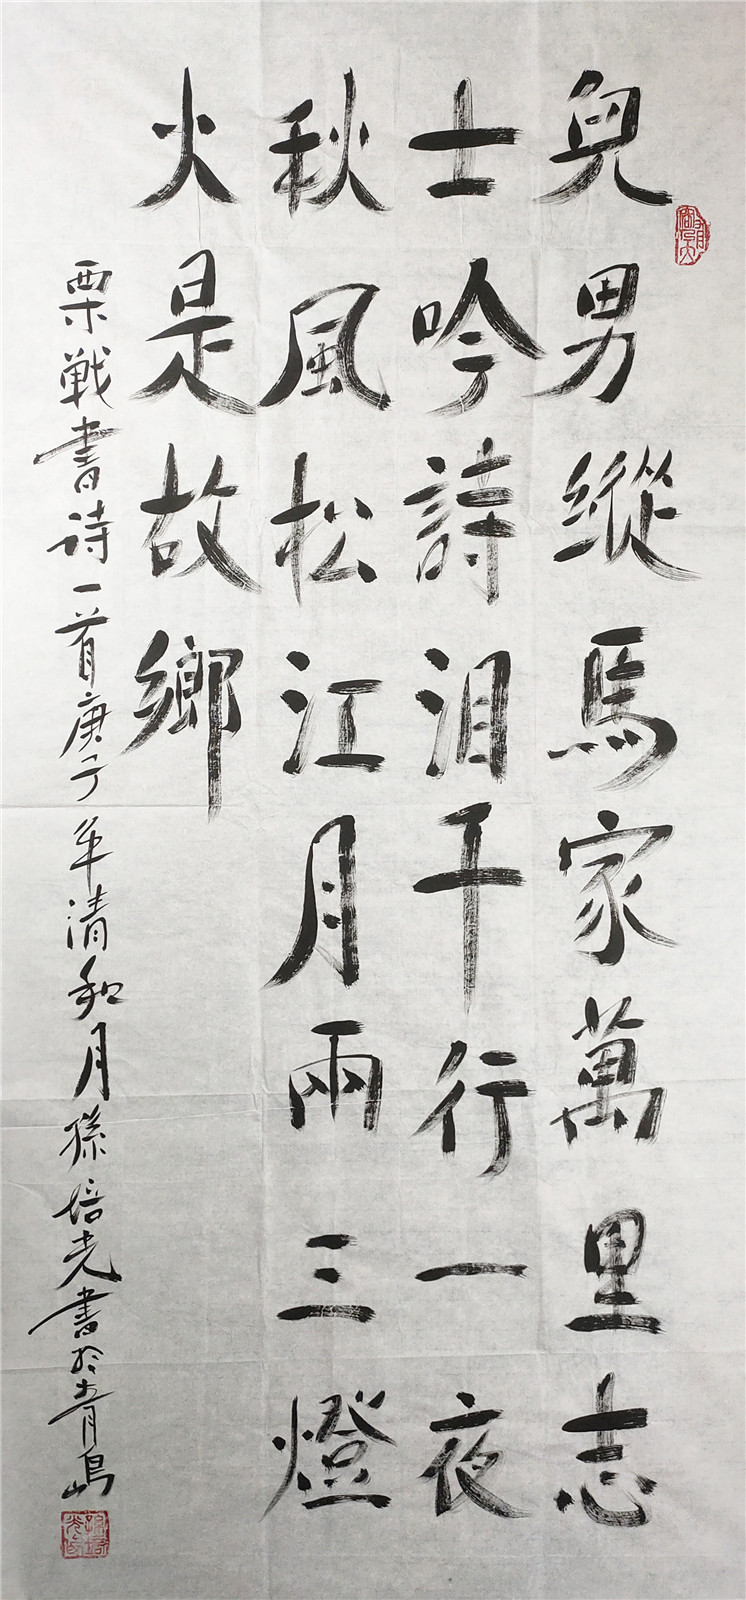 兒男縱馬家萬里志
士吟詩泪干行一夜
秋風松江月兩三燈
火是故鄉
栗戰書诗一首庚子年清和月孫培光書於青島